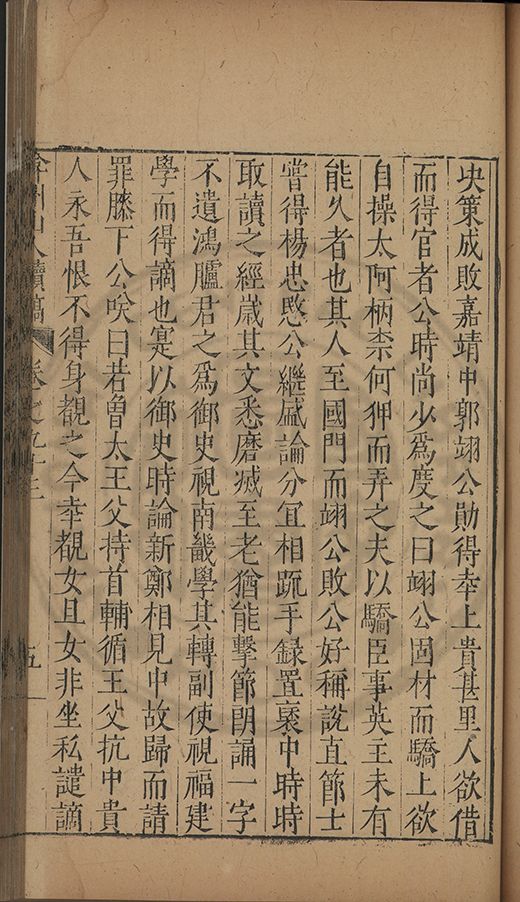 夬策成敗嘉靖中郭翊公勛得幸上貴甚里人欲借
而得官者公時尚少爲度之曰翊公固材而驕上欲
自操太阿柄柰何狎而弄之夫以驕臣事英主未有
能久者也其人至國門而翊公敗公好稱說直節士
嘗得楊忠愍公繼盛論分宜相疏手録置褎中時時
取讀之經歲其文悉磨烕至老猶能擊節朗誦一字
不遺鴻臚君之爲御史視南畿學其轉副使視福建
學而得謫也寔以御史時論新鄭相見中故歸而請
罪膝下公咲曰若魯太王父持首輔循王父抗中貴
人永吾恨不得身覩之今幸覩女且女非坐私譴謫
弇州山人續稿 卷之九十三 五